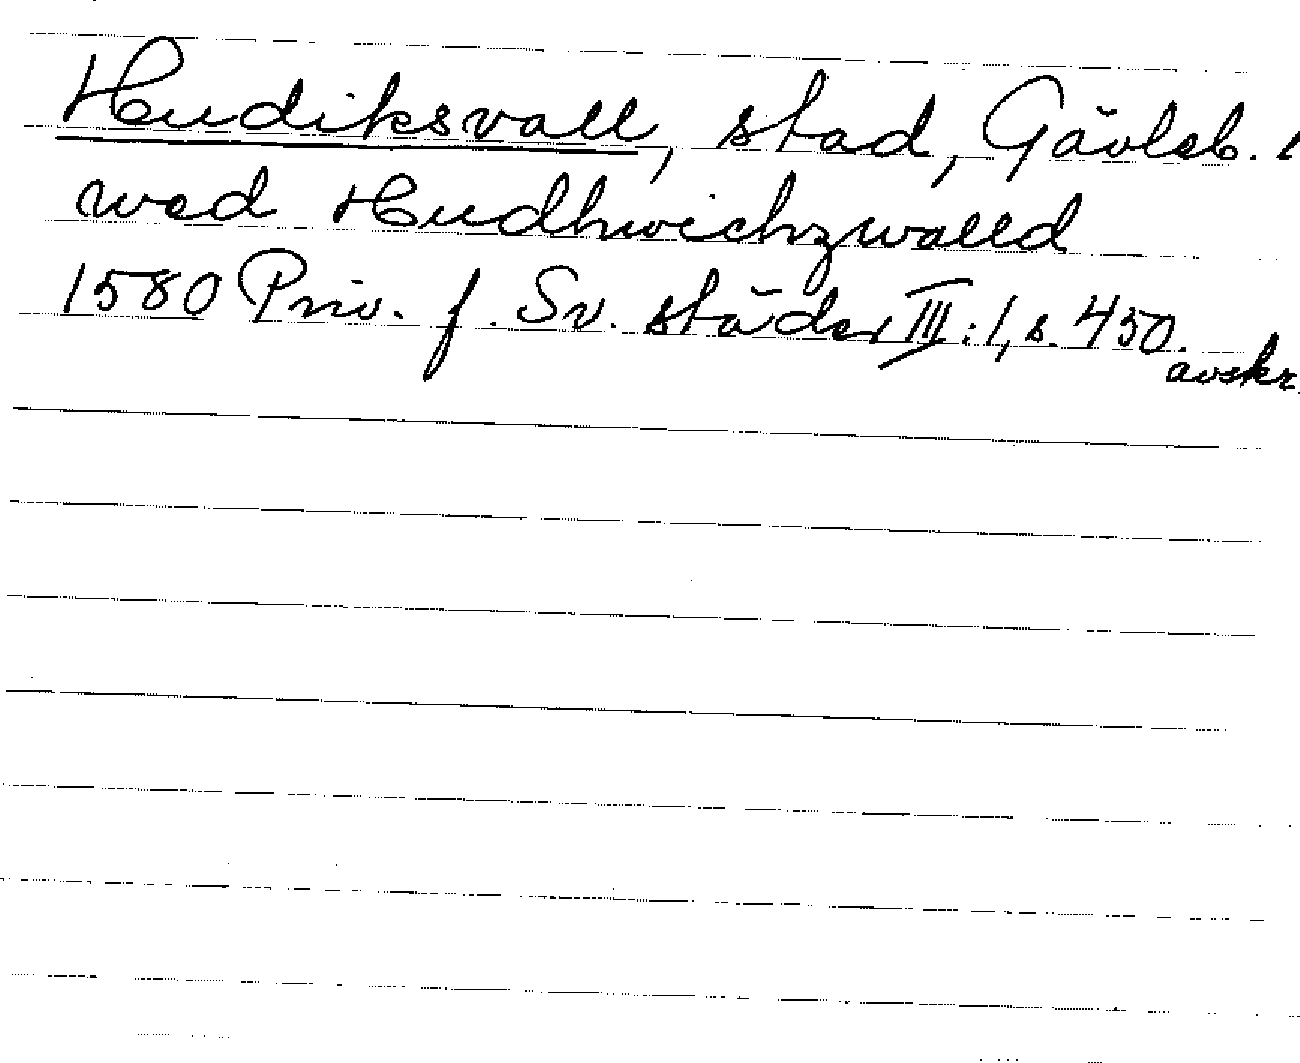 Hudiksvall, stad, Gävleb. l
wed Hudhwichzwalld
1580 Priv. f. Sv. städer III:1, s. 450.
avskr.